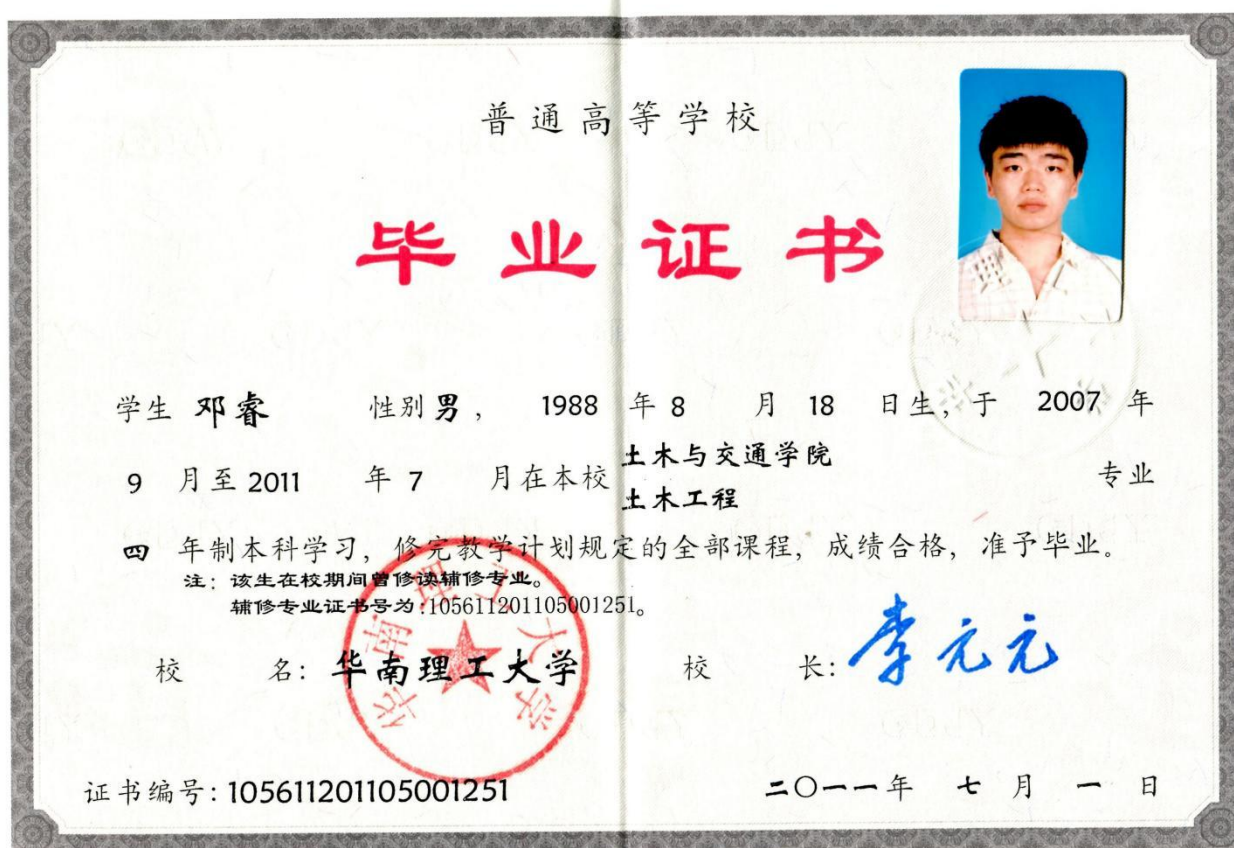 普通高等学校
毕业证书
学生 邓睿 性别 男， 1988 年 8 月 18 日生，于 2007 年
9 月至 2011 年 7 月在本校 土木与交通学院 土木工程 专业
四 年制本科学习，修完教学计划规定的全部课程，成绩合格，准予毕业。
注：该生在校期间曾修读辅修专业。
辅修专业证书号为:105611201105001251。
校 名：华南理工大学 校 长：李元元
华南理工大学
证书编号：105611201105001251 二〇一一年 七 月 一 日